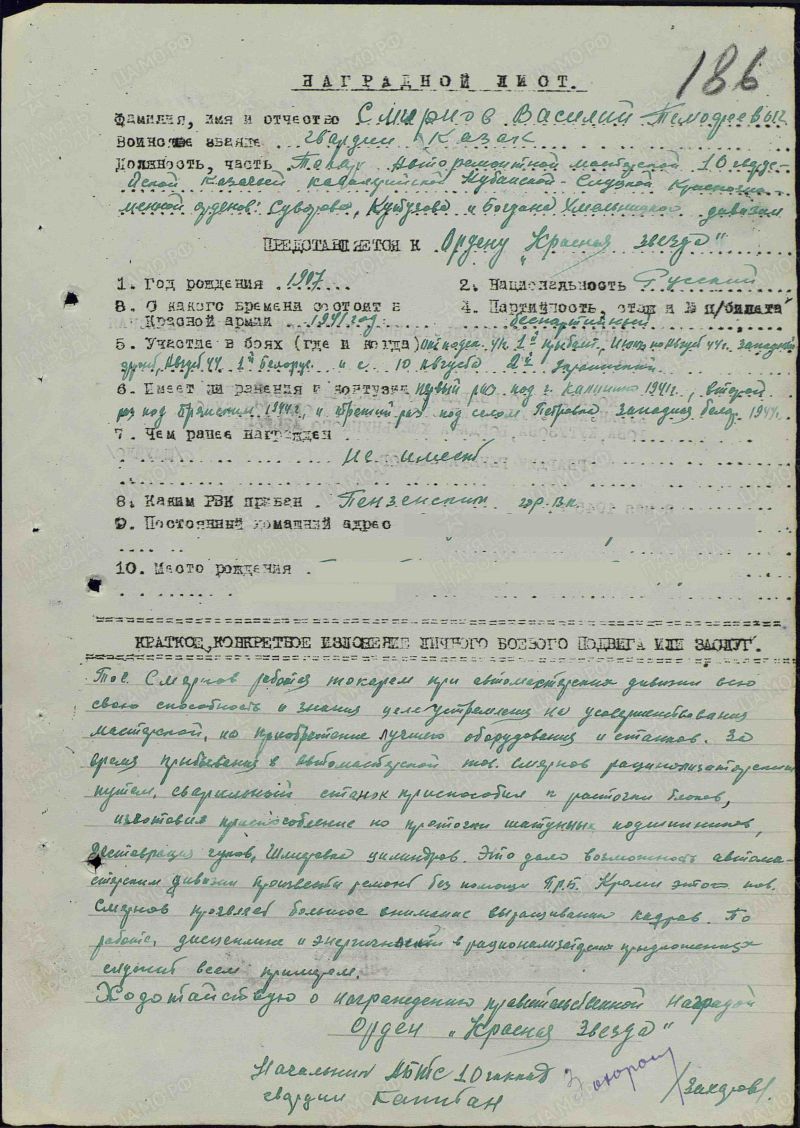 186
НАГРАДНОЙ ЛИСТ.
Фамилия, имя и отчество Смирнов Василий Тимофеевич
Воинское звание гвардии Казак
Должность, часть Токарь Авторемонтной мастерской 10 гварде-
йской Казачей кавалерийской Кубанской-Слуцкой Краснозна-
менной орденов: Суворова, Кутузова и Богдана Хмельницкого дивизии
ПРЕДСТАВЛЯЕТСЯ К Ордену "Красная звезда"
1. Год рождения 1907 2. Национальность Русский
3. С какого времени состоит в 4. Партийность, стаж и № п/билета
Красной армии 1941 год беспартийный
5. Участие в боях (где и когда) 1й прибалт, Июнь по Август 44г. западный
фронт, Август 44 1й белорус. и с 10 августа 2й украинский
6. Имеет ли ранения и контузии первый раз под г. Калинин 1941г, второй
раз под 1942г, и третий раз под селом Петровка Западная белор. 1944г.
7. Чем ранее награжден
не имеет
8. Каким РВК призван Пензенским гор. вк.
9. Постоянный домашний адрес
10. Место рождения
КРАТКОЕ, КОНКРЕТНОЕ ИЗЛОЖЕНИЕ ЛИЧНОГО БОЕВОГО ПОДВИГА ИЛИ ЗАСЛУГ.
Тов. Смирнов работая токарем при автомастерских дивизии всю
свою способность и знания целеустремлена на усовершенствования
мастерской, на приобретение лучшего оборудования и станков. За
время прибывания в автомастерской тов. Смирнов рационализаторским
путем, сверлильный станок приспособил к расточки блоков,
изготовил приспособление по проточки шатунных подшипников,
реставрация гулов, Шлифовка цилиндров. Это дало возможность автома-
стерским дивизии произвести ремонт без помощи ПРБ. Кроме этого тов.
Смирнов проявляет большое внимание выращиванию кадров. По
работе, дисциплине и энергичностью в рационализаторских предложениях
служит всем примером.
Ходотайствую о награждению правительственной наградой
Орден "Красная Звезда"
Начальник АБТС 10 гв.ккд
гвардии Капитан /Захаров/.